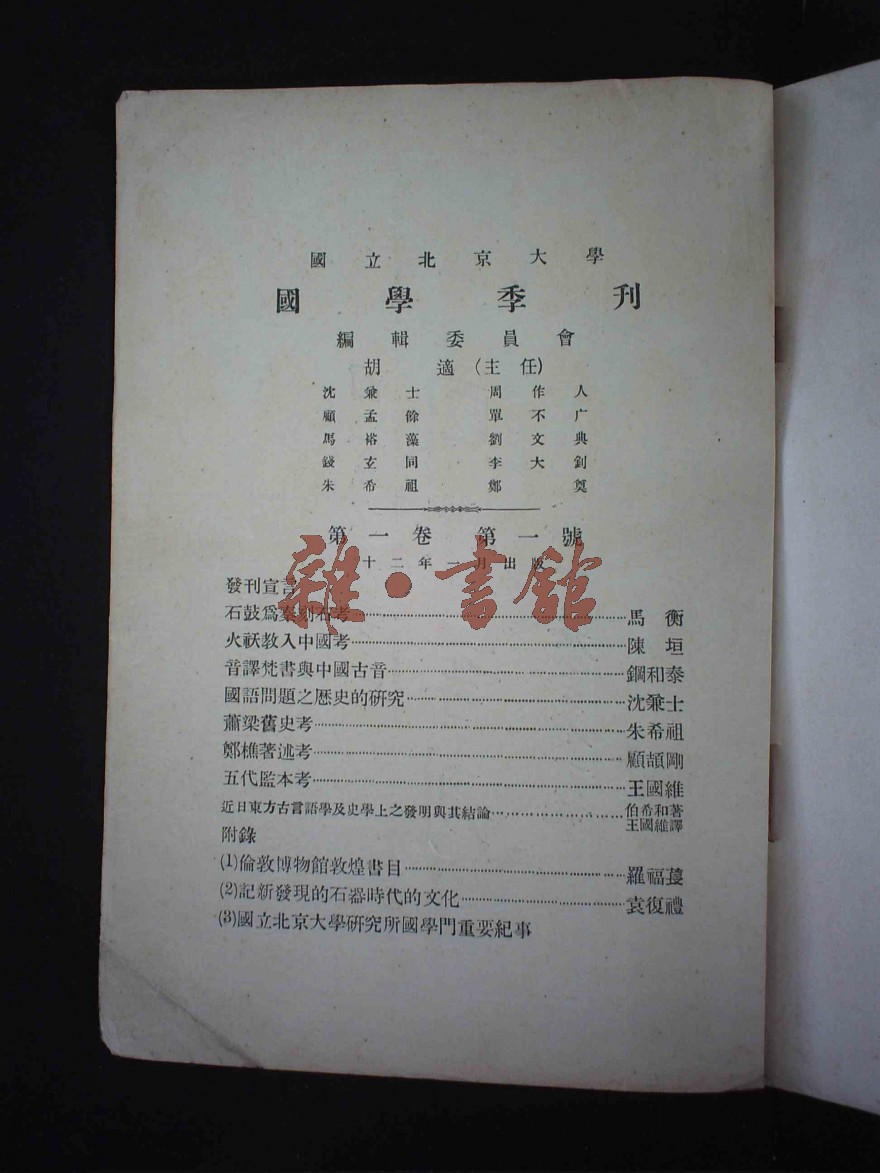 國立北京大學
國學季刊
編輯委員會
胡適(主任)
沈兼士 周作人
顧孟餘 單不广
馬裕藻 劉文典
錢玄同 李大釗
朱希祖 鄭奠
第一卷 第一號
十二年一月出版
雜·書館
發刊宣言
石鼓爲秦刻石考……馬衡
火祆教入中國考……陳垣
音譯梵書與中國古音……鋼和泰
國語問題之歷史的研究……沈兼士
蕭梁舊史考……朱希祖
鄭樵著述考……顧頡剛
五代監本考……王國維
近日東方古言語學及史學上之發明與其結論……伯希和著
王國維譯
附錄
(1)倫敦博物館敦煌書目……羅福萇
(2)記新發現的石器時代的文化……袁復禮
(3)國立北京大學研究所國學門重要紀事